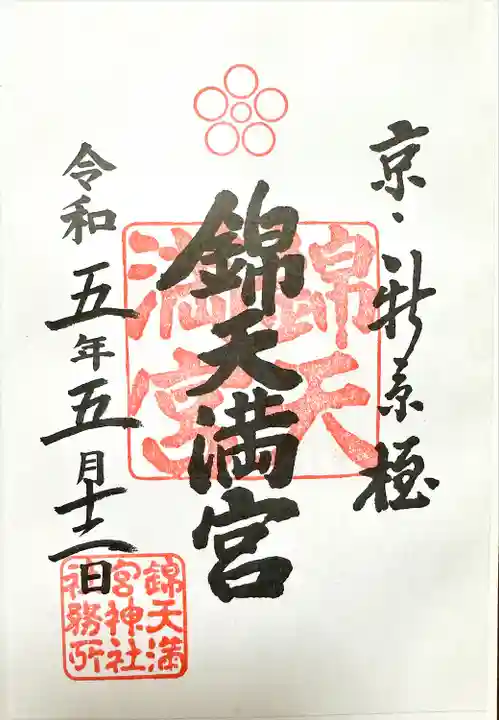 京、新京極
錦天満宮
錦天満宮
令和五年五月十二日
錦天満
宮神社
社務所